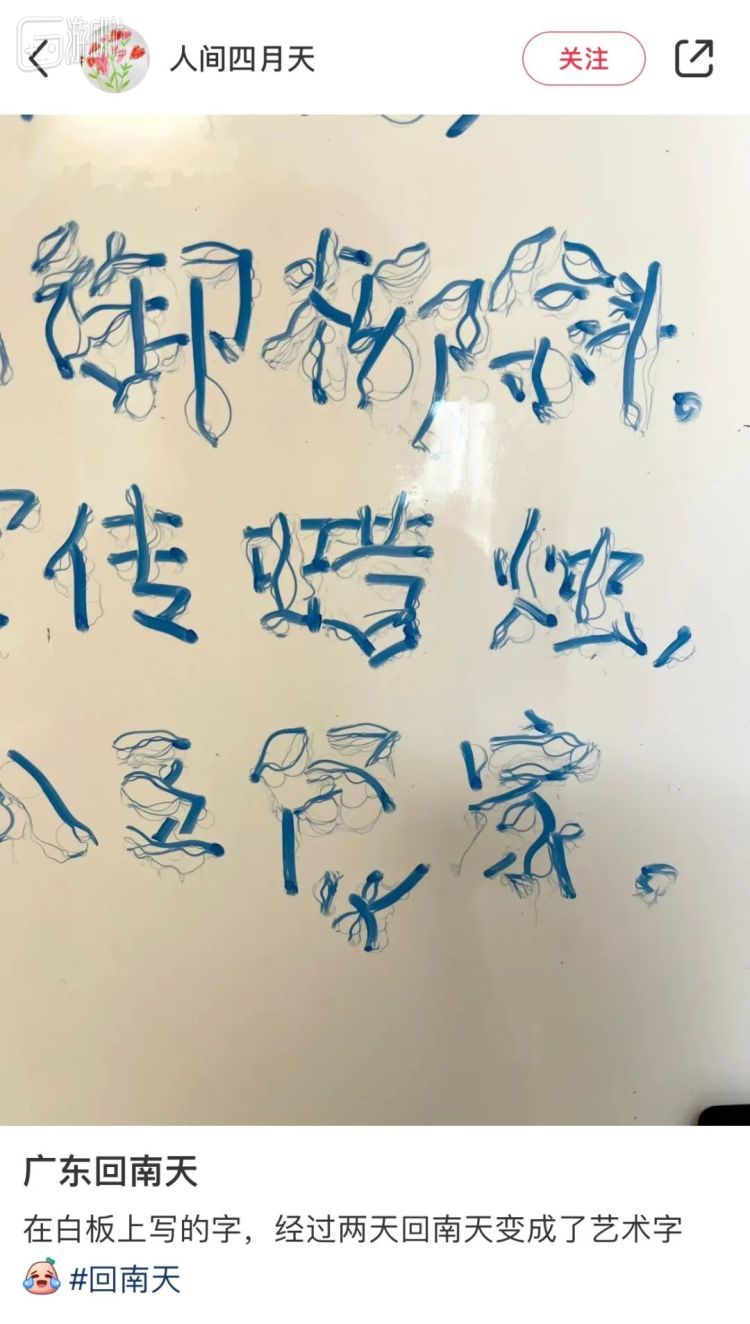 人间四月天
关注
御柳斜。
传蜡烛,
五侯家。
广东回南天
在白板上写的字，经过两天回南天变成了艺术字
#回南天